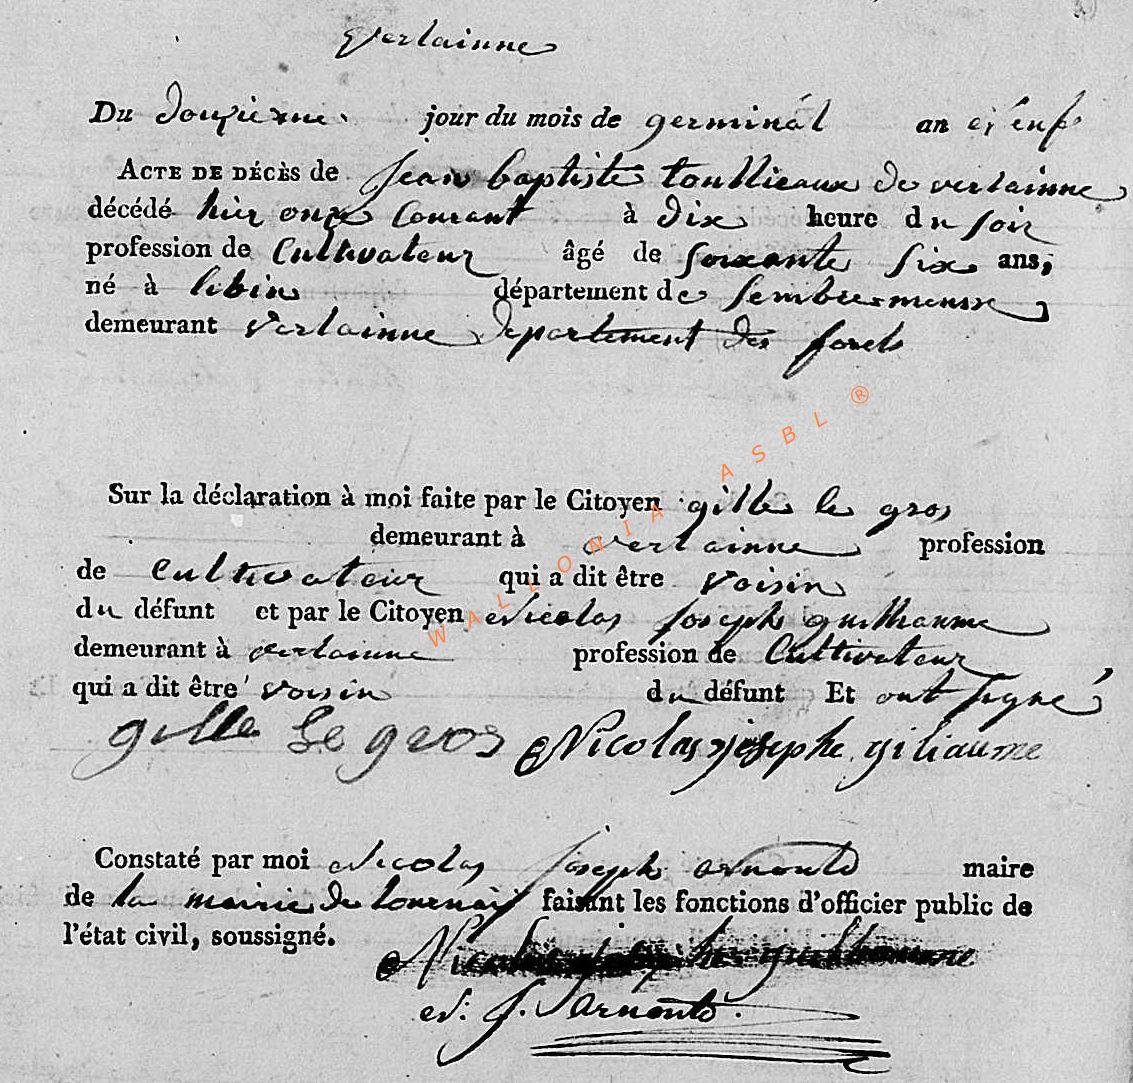 verlainne
Du douzieme jour du mois de germinal an neuf
ACTE DE DÉCÈS de Jean baptiste toullieaux de verlainne
décédé hier onze Courant à dix heure du soir
profession de Cultivateur âgé de soixante six ans,
né à libin département de sembreemeuse
demeurant verlainne departement des forets
Sur la déclaration à moi faite par le Citoyen gille le gros
demeurant à verlainne profession
de Cultivateur qui a dit être voisin
du défunt et par le Citoyen Nicolas joseph guilliaume
demeurant à verlainne profession de Cultivateur
qui a dit être voisin du défunt Et ont signé
gille Le gros Nicolas josephe giliaume
Constaté par moi Nicolas joseph arnould maire
de la mairie de tournay faisant les fonctions d'officier public de
l'état civil, soussigné.
N: J. arnould.
WALLONIA ASBL ®